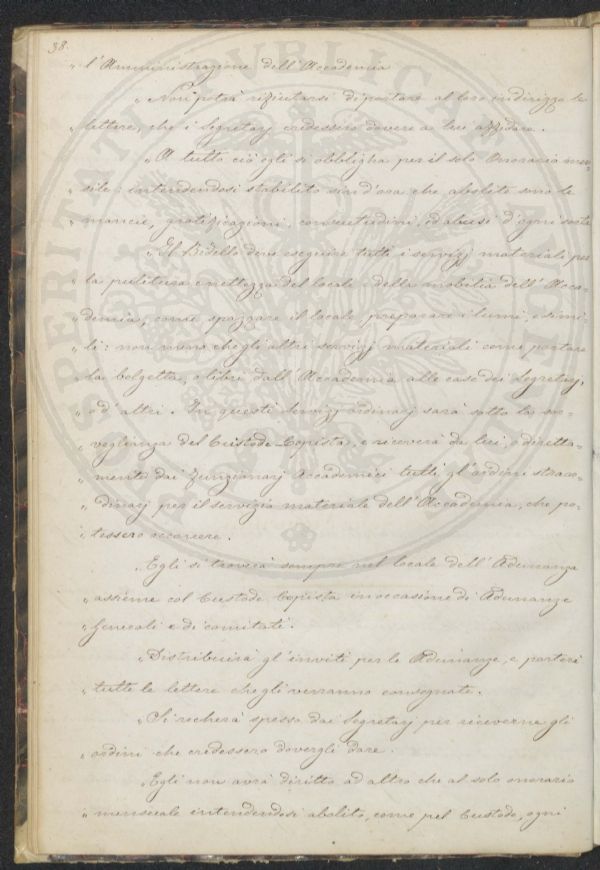 38.
" l'Amministrazione dell'Accademia
" Non potrà rifiutarsi di portare al loro indirizzo le
" lettere, che i Segretarj credessero dovere a lui affidare.
" A tutto ciò egli si obbligha per il solo Onorario men-
" sile: intendendosi stabilito sin d'ora che abolite sono le
" mancie, gratificazioni, consuetudini, ed abusi d'ogni sorte
" Il Bidello deve eseguire tutti i servizj materiali per
" la pulitura e nettezza del locale e della mobilia dell'Acca-
" demia, come spazzare il locale, preparare i lumi, e simi-
" li: non meno che gli altri servizj materiali come portare
" la bolgetta, o libri dall'Accademia alle case dei Segretarj,
" o d'altri. In questi servizj ordinarj sarà sotto la sor-
" veglianza del Custode-Copista, e riceverà da lui, o diretta-
" mente dai funzionarj Accademici tutti gl'ordini straor-
" dinarj per il servizio materiale dell'Accademia, che po-
" tessero occorrere.
" Egli si troverà sempre nel locale dell'Adunanza
" assieme col Custode Copista in occasione di Adunanze
" Generali e di comitati.
" Distribuirà gl'inviti per le Adunanze, e porterà
" tutte le lettere che gli verranno consegnate.
" Si recherà spesso dai Segretarj per riceverne gli
" ordini che credessero dovergli dare.
" Egli non avrà diritto ad altro che al solo onorario
" mensuale intendendosi abolito, come pel Custode, ogni
PROSPERITATI PUBLICAE AUGENDAE